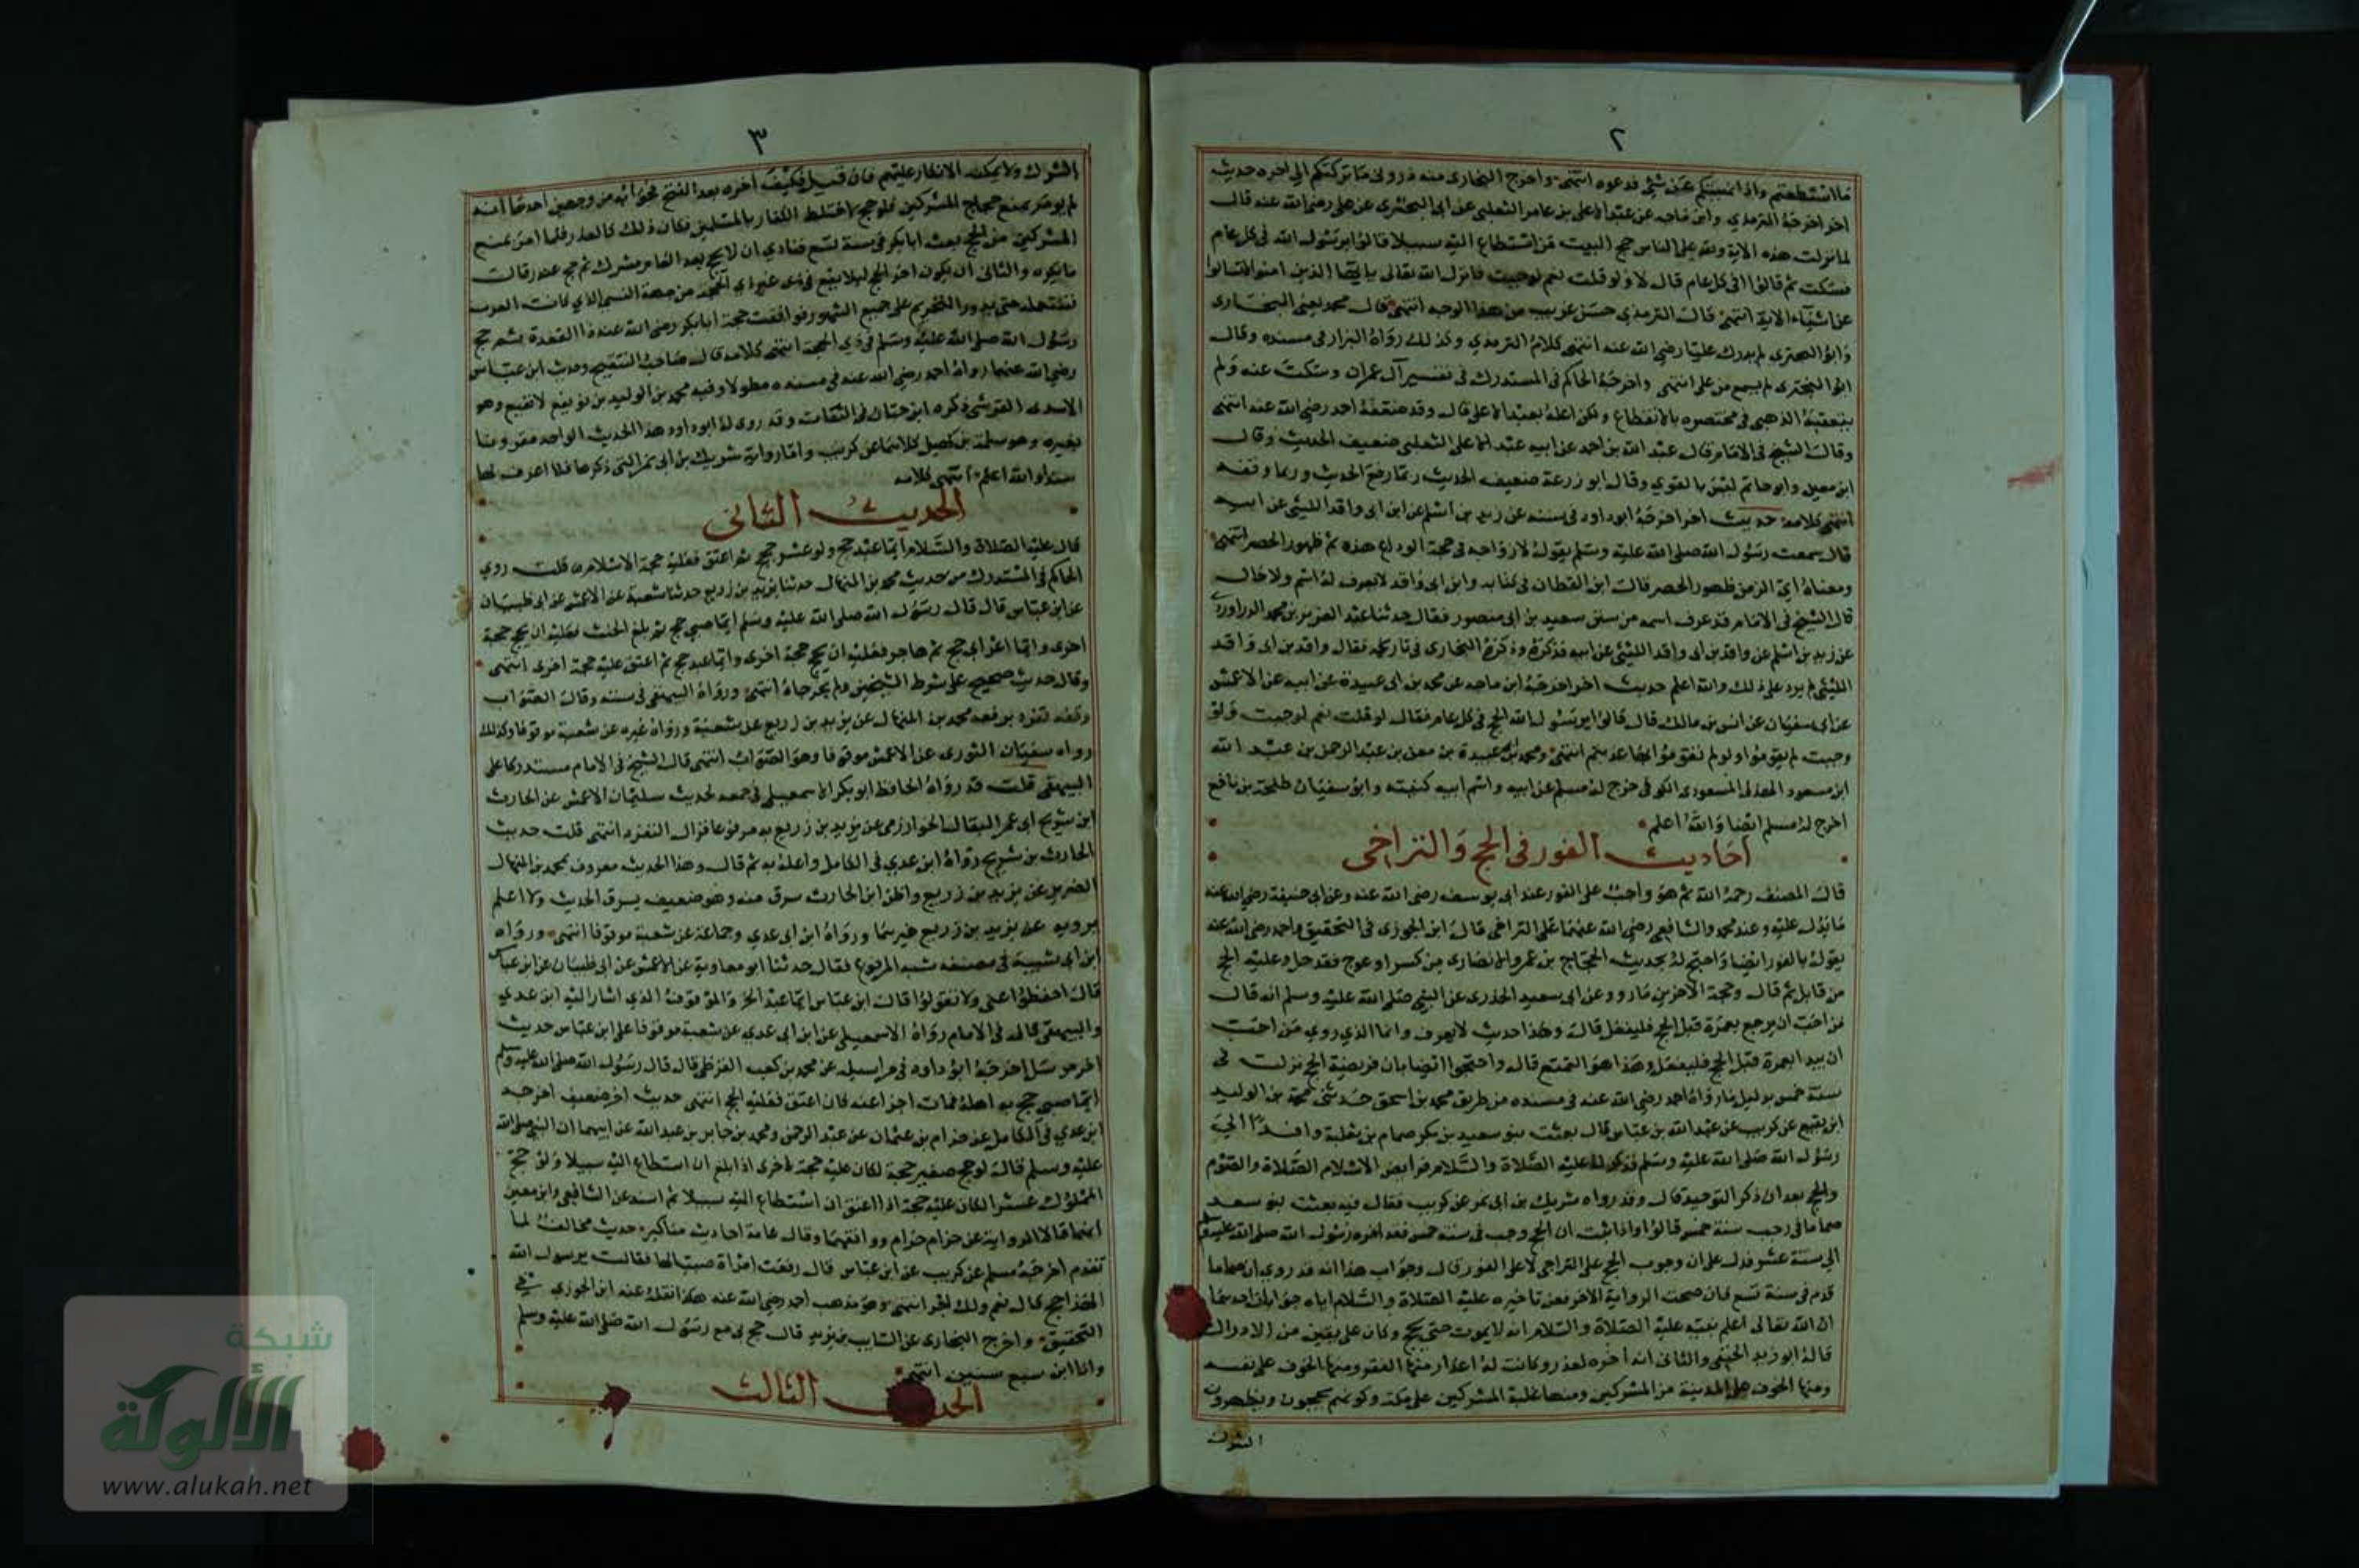 ٢
ما استطعتم واذا نهيتكم عن شئ فدعوه انتهى واخرج البخارى منه ذرونى ما تركتكم الى اخره حديث
اخر اخرجه الترمذي وابن ماجه عن عبد الاعلى بن عامر الثعلبى عن ابى البخترى عن على رضى الله عنه قال
لما نزلت هذه الاية ولله على الناس حج البيت من استطاع اليه سبيلا قالوا يا رسول الله فى كل عام
فسكت ثم قالوا افى كل عام قال لا ولو قلت نعم لوجبت فانزل الله تعالى يا ايها الذين امنوا لا تسالوا
عن اشياء الاية انتهى قال الترمذي حسن غريب من هذا الوجه انتهى قال محمد يعنى البخارى
وابو البخترى لم يدرك عليا رضى الله عنه انتهى كلام الترمذي وكذلك رواه البزار فى مسنده وقال
ابو البخترى لم يسمع من على انتهى واخرجه الحاكم فى المستدرك فى تفسير آل عمران وسكت عنه ولم
يتعقبه الذهبى فى مختصره بالانقطاع ولكن اعله بعبد الاعلى قال وقد ضعفه احمد رضى الله عنه انتهى
وقال الشيخ فى الامام قال عبد الله بن احمد عن ابيه عبد الاعلى الثعلبى ضعيف الحديث وقال
ابن معين وابو حاتم ليس بالقوي وقال ابو زرعة ضعيف الحديث ربما رفع الحديث وربما وقفه
انتهى كلامه حديث اخر اخرجه ابو داود فى سننه عن زيد بن اسلم عن ابن ابى واقد الليثى عن ابيه
قال سمعت رسول الله صلى الله عليه وسلم يقول لازواجه فى حجة الوداع هذه ثم ظهور الحصر انتهى
ومعناه اي الزمن ظهور الحصر قال ابن القطان فى كتابه وابن ابى واقد لا يعرف له اسم ولا حال
قال الشيخ فى الامام قد عرف اسمه من سنن سعيد بن ابى منصور فقال حدثنا عبد العزيز بن محمد الدراوردى
عن زيد بن اسلم عن واقد بن ابى واقد الليثى عن ابيه فذكره وذكره البخارى فى تاريخه فقال واقد بن ابى واقد
الليثى لم يزد على ذلك والله اعلم حديث اخر اخرجه ابن ماجه عن محمد بن ابى عبيدة عن ابيه عن الاعمش
عن ابى سفيان عن انس بن مالك قال قالوا يا رسول الله الحج فى كل عام فقال لو قلت نعم لوجبت ولو
وجبت لم يقوموا ولو لم تقوموا بها عذبتم انتهى ومحمد بن ابى عبيدة بن معن بن عبد الرحمن بن عبد الله
ابن مسعود الهذلى المسعودى الكوفى خرج له مسلم عن ابيه واسم ابيه كنيته وابو سفيان طلحة بن نافع
اخرج له مسلم ايضا والله اعلم
احاديث الفور فى الحج والتراخى
قال المصنف رحمه الله ثم هو واجب على الفور عند ابى يوسف رضى الله عنه وعن ابى حنيفة رضى الله عنه
ما يدل عليه وعند محمد والشافعى رضى الله عنهما على التراخى قال ابن الجوزى فى التحقيق واحمد رضى الله عنه
يقول بالفور ايضا واحتج له بحديث الحجاج بن عمرو الانصارى من كسر او عرج فقد حل وعليه الحج
من قابل ثم قال وحجة الآخرين ما روى عن ابى سعيد الخدرى عن النبى صلى الله عليه وسلم انه قال
من احب ان يرجع بعمرة قبل الحج فليفعل قال وهذا حديث لا يعرف وانما الذي روي من احب
ان يبدا بعمرة قبل الحج فليفعل وهذا هو التمتع قال واحتجوا ايضا بان فريضة الحج نزلت فى
سنة خمس بدليل ما رواه احمد رضى الله عنه فى مسنده من طريق محمد بن اسحق حدثنى محمد بن الوليد
ابن نفيع عن كريب عن عبد الله بن عباس قال بعثت بنو سعيد بن بكر ضمام بن ثعلبة وافدا الى
رسول الله صلى الله عليه وسلم فذكر له عليه الصلاة والسلام فرايض الاسلام الصلاة والصوم
والحج بعد ان ذكر التوحيد قال وقد رواه شريك بن ابى نمر عن كريب فقال فيه بعثت بنو سعد
ضماما فى رجب سنة خمس قالوا واذا ثبت ان الحج وجب فى سنة خمس فقد اخره رسول الله صلى الله عليه وسلم
الى سنة عشر فدل على ان وجوب الحج على التراخى لا على الفور قال وجواب هذا انه قد روي ان ضماما
قدم فى سنة تسع فان صحت الرواية الاخر فعن تاخيره عليه الصلاة والسلام اياه جوابان احدهما
ان الله تعالى اعلم نبيه عليه الصلاة والسلام انه لا يموت حتى يحج وكان على يقين من الادراك
قاله ابو زيد الحنفى والثانى انه اخره لعذر وكانت له اعذار منها الفقر ومنها الخوف على نفسه
ومنها الخوف على المدينة من المشركين ومنها غلبة المشركين على مكة وكونهم يحجون ويظهرون
الشرك
٣
الشرك ولا يمكنه الانكار عليهم فان قيل فكيف اخره بعد الفتح فجوابه من وجهين احدهما انه
لم يومر بمنع حجاج المشركين فلو حج لاختلط الكفار بالمسلمين فكان ذلك كالعذر فلما امر بمنع
المشركين من الحج بعث ابا بكر فى سنة تسع فنادى ان لا يحج بعد العام مشرك ثم حج عند زوال
ما يكره والثانى ان يكون اخر الحج ليلا يقع فى ذى غير ذي الحجة من جهة النسئ الذي كانت العرب
تستعمله حتى يدور التحريم على جميع الشهور فوافقت حجة ابا بكر رضى الله عنه ذا القعدة ثم حج
رسول الله صلى الله عليه وسلم فى ذي الحجة انتهى كلامه قال صاحب التنقيح وحديث ابن عباس
رضى الله عنهما رواه احمد رضى الله عنه فى مسنده مطولا وفيه محمد بن الوليد بن نويفع لا نفيع وهو
الاسدى القرشى ذكره ابن حبان فى الثقات وقد روى له ابو داود هذا الحديث الواحد مقرونا
بغيره وهو سلمة بن كهيل كلاهما عن كريب واما رواية شريك بن ابى نمر التى ذكرها فلا اعرف لها
سندا والله اعلم انتهى كلامه
الحديث الثانى
قال عليه الصلاة والسلام ايما عبد حج ولو عشر حجج ثم اعتق فعليه حجة الاسلام قلت روى
الحاكم فى المستدرك من حديث محمد بن المنهال حدثنا يزيد بن زريع حدثنا شعبة عن الاعمش عن ابى ظبيان
عن ابن عباس قال قال رسول الله صلى الله عليه وسلم ايما صبى حج ثم بلغ الحنث فعليه ان يحج حجة
اخرى وايما اعرابى حج ثم هاجر فعليه ان يحج حجة اخرى وايما عبد حج ثم اعتق عليه حجة اخرى انتهى
وقال حديث صحيح على شرط الشيخين ولم يخرجاه انتهى ورواه البيهقى فى سننه وقال الصواب
وقفه تفرد برفعه محمد بن المنهال عن يزيد بن زريع عن شعبة ورواه غيره عن شعبة موقوفا وكذلك
رواه سفيان الثورى عن الاعمش موقوفا وهو الصواب انتهى قال الشيخ فى الامام مستدركا على
البيهقى قلت قد رواه الحافظ ابو بكر الاسمعيلى فى جمعه لحديث سليمان الاعمش عن الحارث
ابن سريج ابى عمر النقال الخوارزمى عن يزيد بن زريع به مرفوعا فزال التفرد انتهى قلت حديث
الحارث بن شريح رواه ابن عدي فى الكامل واعله به ثم قال وهذا الحديث معروف بمحمد بن المنهال
الضرير عن يزيد بن زريع واظن ابن الحارث سرق منه وهو ضعيف يسرق الحديث ولا اعلم
يرويه عن يزيد بن زريع غيرهما ورواه ابن ابى عدي وجماعة عن شعبة موقوفا انتهى ورواه
ابن ابى شيبة فى مصنفه شبه المرفوع فقال حدثنا ابو معاوية عن الاعمش عن ابى ظبيان عن ابن عباس
قال احفظوا عنى ولا تقولوا قال ابن عباس ايما عبد الخ والموقوف الذي اشار اليه ابن عدي
والبيهقى قال فى الامام رواه الاسمعيلى عن ابن ابى عدي عن شعبة موقوفا على ابن عباس حديث
اخر مرسل اخرجه ابو داود فى مراسيله عن محمد بن كعب القرظى قال قال رسول الله صلى الله عليه وسلم
ايما صبى حج به اهله فمات اجزا عنه فان اعتق فعليه الحج انتهى حديث اخر ضعيف اخرجه
ابن عدي فى الكامل عن حرام بن عثمان عن عبد الرحمن ومحمد بن جابر بن عبد الله عن ابيهما ان النبى صلى الله
عليه وسلم قال لو حج صغير حجة لكان عليه حجة اخرى اذا بلغ ان استطاع اليه سبيلا ولو حج
المملوك عشرا لكان عليه حجة اذا اعتق ان استطاع اليه سبيلا ثم اسند عن الشافعى وابن معين
انهما قالا الرواية عن حرام حرام ووافقهما وقال عامة احاديثه مناكير حديث مخالف لما
تقدم اخرجه مسلم عن كريب عن ابن عباس قال رفعت امراة صبيا لها فقالت يا رسول الله
الهذا حج قال نعم ولك اجر انتهى وهو مذهب احمد رضى الله عنه هكذا نقله عنه ابن الجوزى فى
التحقيق واخرج البخارى عن السايب بن يزيد قال حج بى مع رسول الله صلى الله عليه وسلم
وانا ابن سبع سنين انتهى
الحديث الثالث
شبكة
الألوكة
www.alukah.net